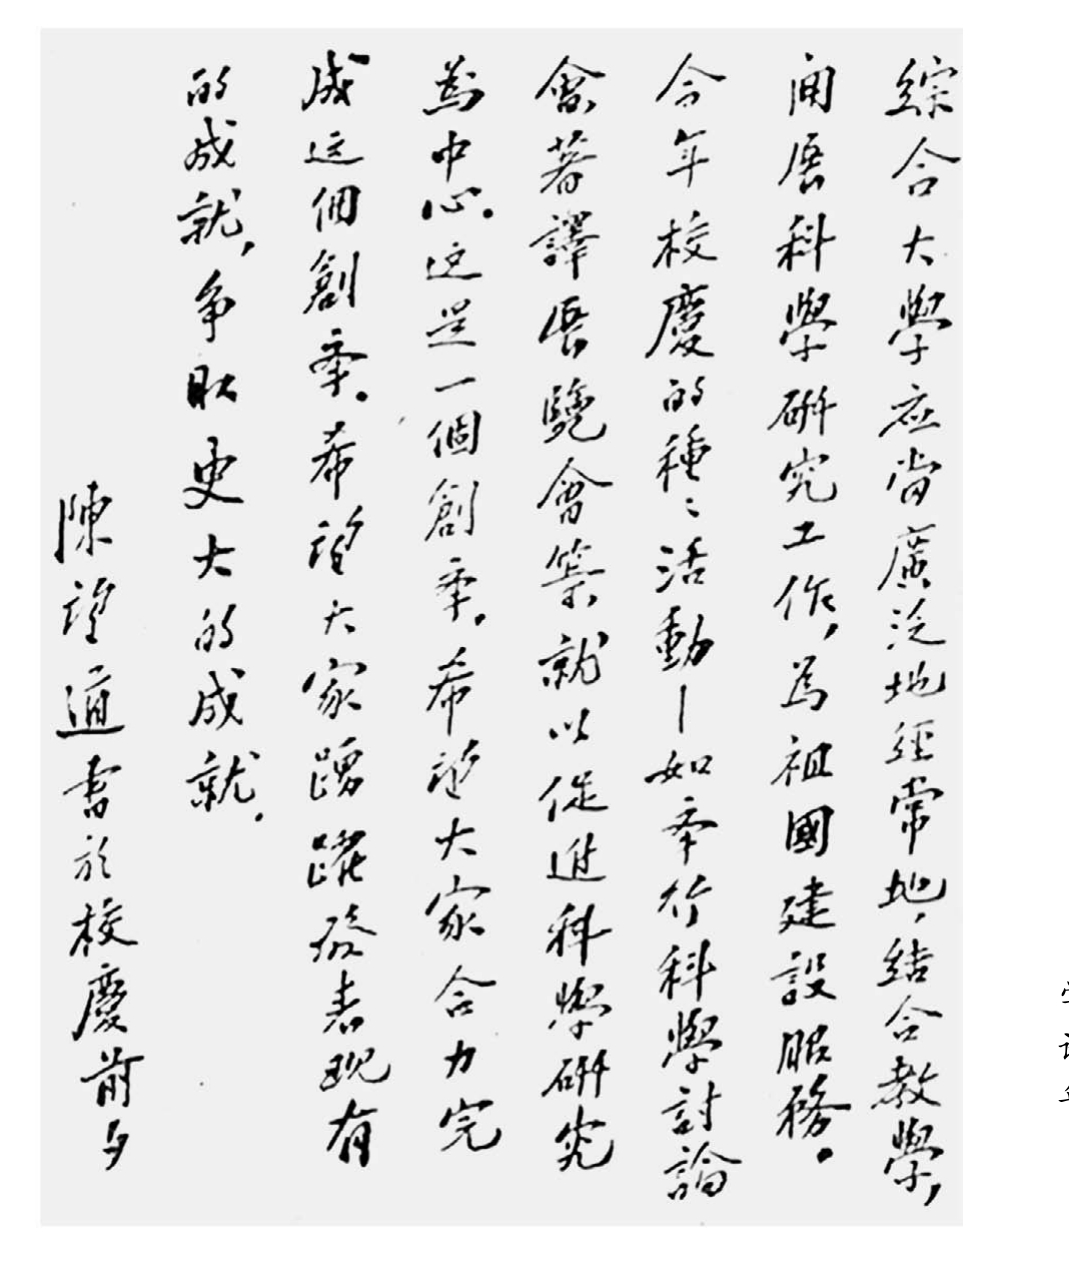 綜合大學应当廣泛地經常地，結合教學，
開展科學研究工作，為祖國建設服務。
今年校慶的種々活動—如举行科學討論
會，著譯展覽會等，就以促進科學研究
為中心。这是一個創举。希望大家合力完
成这個創举。希望大家踴躍發表現有
的成就，争取更大的成就。
陳望道書於校慶前夕